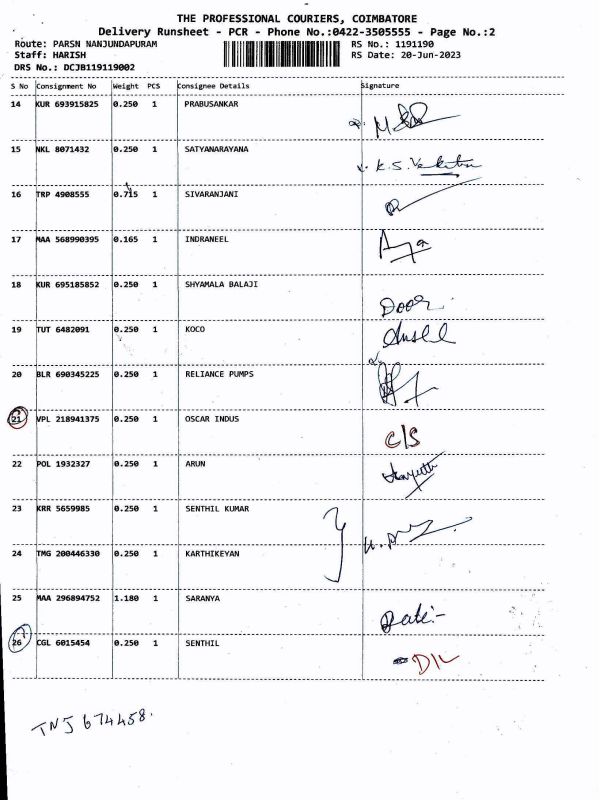 THE PROFESSIONAL COURIERS, COIMBATORE
Delivery Runsheet - PCR - Phone No.:0422-3505555 - Page No.:2
Route: PARSN NANJUNDAPURAM RS No.: 1191190
Staff: HARISH RS Date: 20-Jun-2023
DRS No.: DCJB119119002
S No Consignment No Weight PCS Consignee Details Signature
14 KUR 693915825 0.250 1 PRABUSANKAR
15 NKL 8071432 0.250 1 SATYANARAYANA K.S.
16 TRP 4908555 0.715 1 SIVARANJANI
17 MAA 568990395 0.165 1 INDRANEEL
18 KUR 695185852 0.250 1 SHYAMALA BALAJI Door
19 TUT 6482091 0.250 1 KOCO
20 BLR 690345225 0.250 1 RELIANCE PUMPS
21 VPL 218941375 0.250 1 OSCAR INDUS C/S
22 POL 1932327 0.250 1 ARUN
23 KRR 5659985 0.250 1 SENTHIL KUMAR
24 TMG 200446330 0.250 1 KARTHIKEYAN
25 MAA 296894752 1.180 1 SARANYA
26 CGL 6015454 0.250 1 SENTHIL D/L
TNJ 674458.